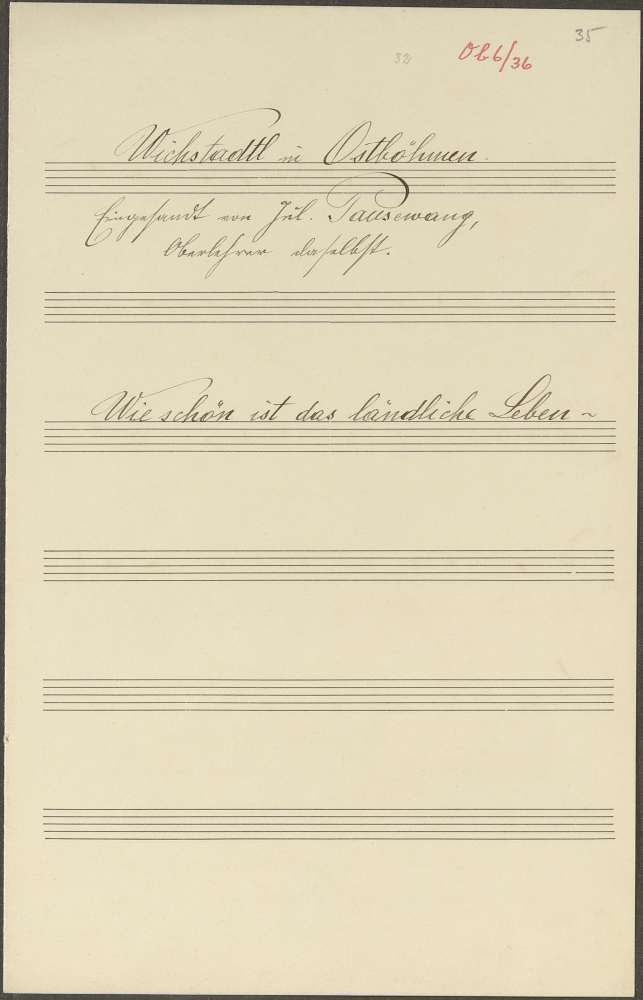 35
32
Ob6/36
Wichstadtl in Ostböhmen.
Eingesandt von Jul. Tausewang,
Oberlehrer daselbst.
Wie schön ist das ländliche Leben ~